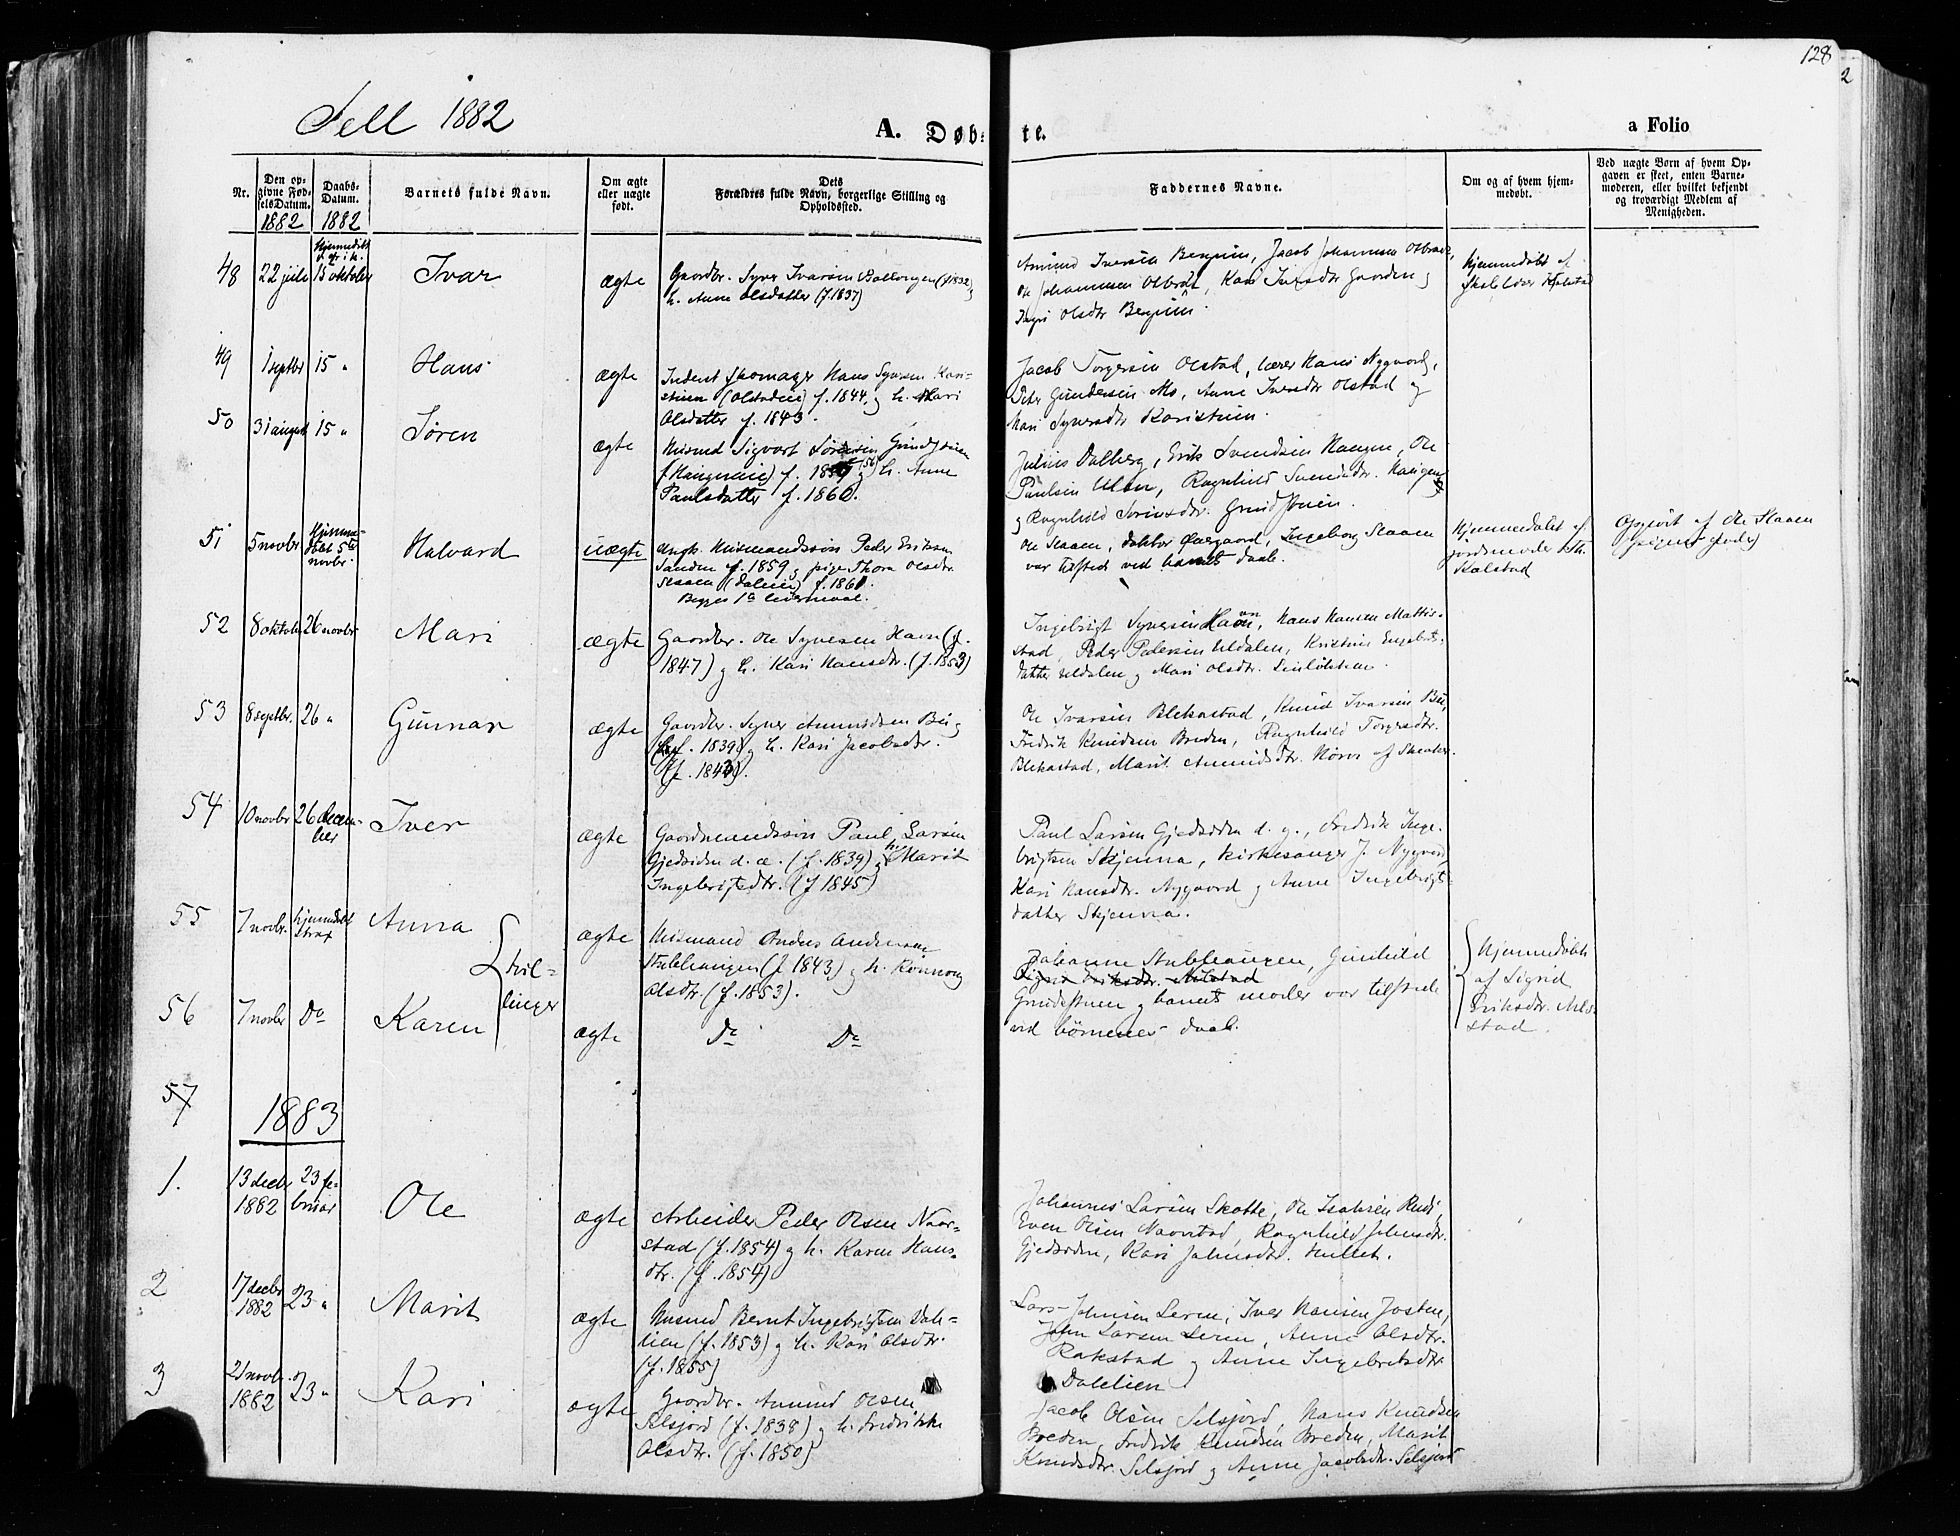 128
2
Sell 1882
A. Døb-
te.
a Folio
Nr.
Den op-
givne Fød-
selsDatum.
1882
Daabs-
Datum.
1882
Barnets fulde Navn.
Om ægte
eller uægte
født.
Dets
Forældres fulde Navn, borgerlige Stilling og
Opholdssted.
Faddernes Navne.
Om og af hvem hjem-
medøbt.
Ved uægte Børn af hvem Op-
gaven er skeet, enten Barne-
moderen, eller hvilket bekjendt
og troværdigt Medlem af
Menigheden.
48
22 juli
15 oktober
Ivar
ægte
Gaardbr. Syver Ivarsen (f 1832) g
h. Anne Olsdatter (f. 1837)
Amund Iversen Berguim, Jacob Johannesen
Ole Johannesen, Kari Iversdtr g
Olsdtr Berguim.
Hjemmedøbt af
49
1 septbr
15 "
Hans
ægte
Inderst Skomager Hans Syversen Kari-
stuen (Olstadeie) f. 1844 g h. Mari
Olsdatter f. 1843.
Jacob Torgersen Olstad, lærer Hans Nygaard,
Peter Gundersen Mo, Anne Iversdtr Olstad g
Mari Syversdtr Karistuen.
50
31 august
15 "
Søren
ægte
Husmd Sigvart Sørensen
f. g (56) h. Anne
Paulsdatter f. 1860.
Julius Dalberg, Erik Svendsen Haugen, Ole
Paulsen Ulen, Ragnhild Svendsdtr. Haugen
g Ragnhild Sørensdtr.
51
5 novbr
Hjemme-
døbt 5te
novbr.
Halvard
uægte
Ungk. Husmandssøn Peder Eriksen
Sanden f. 1859 g pige Thora Olsdtr.
Slaaen (Daleie) f. 1861.
Begges 1ste leiermaal.
Ole Slaaen, doktor, Ingeborg Slaaen
var tilstede ved barnets daab.
Hjemmedøbt af
jordmoder
Kolstad
Opgivet af Ole Slaaen
52
8 oktober
26 novbr
Mari
ægte
Gaardbr. Ole Syversen Havn (f.
1847) g h. Kari Hansdtr. (f. 1853)
Ingebrigt Syversen Havn, Hans Hansen Mattis-
stad, Peder Pedersen Uldalen, Kristine Engebrets-
datter Uldalen g Mari Olsdtr.
53
8 septbr.
26 "
Gunnar
ægte
Gaardbr. Syver Amundsen Bu g
f. 1839 g h. Kari Jacobsdtr.
(f. 1843).
Ole Ivarsen Blekastad, Knud Ivarsen Bu,
Fredrik Knudsen Breden, Ragnhild Torgersdtr.
Blekastad, Marit Amundsdtr.
54
10 novbr
26 decem-
ber
Iver
ægte
Gaardmandssøn Paul Larsen
Gjedsiden d. æ. (f. 1839) g h. Marit
Ingebrigtsdtr. (f 1845)
Paul Larsen Gjedsiden d. y., Fredrik Inge-
brigtsen Skjenna, kirkesanger J. Nygaard,
Kari Hansdtr. Nygaard g Anne Ingebrigts-
datter Skjenna.
55
7 novbr.
hjemmedøbt
strax
Anna
tvil-
linger
ægte
Husmand Anders Andersen
Stubhaugen (f 1843) g h. Rønnoug
Olsdtr. (f. 1853).
Johanne Stubhaugen, Gunhild
Sigrid Eriksdtr. Nilstad
Grindstuen g barnets moder var tilstede
ved børnenes daab.
Hjemmedøbt
af Sigrid
Eriksdtr. Nil-
stad.
56
7 novbr
Do
Karen
ægte
Do Do
57
1883
1.
13 decbr
1882
23 fe-
bruar
Ole
ægte
Arbeider Peder Olsen Naar-
stad (f. 1854) g h. Karen Hans-
dtr. (f. 1854)
Johannes Larsen Skotte, Ole Isaksen Rudi,
Even Olsen Naarstad, Ragnhild Johnsdtr.
Gjedsiden, Kari Johnsdtr.
2
17 decbr
1882
23 "
Marit
ægte
Husmd Bernt Ingebrigtsen Dah-
lien (f. 1853) g h. Kari Olsdtr.
(f. 1855)
Lars Johnsen Leren, Iver Hansen Josten,
John Larsen Leren, Anne Olsdtr.
Rakstad g Anne Ingebretsdtr.
Dalelien
3
21 novbr.
1882
23 "
Kari
ægte
Gaardbr. Amund Olsen
Selsjord (f. 1838) g h. Fredrikke
Olsdtr. (f. 1850)
Jacob Olsen Selsjord, Hans Knudsen
Breden, Fredrik Knudsen Breden, Marit
Knudsdtr. Selsjord g Anne Jacobsdtr. Selsjord